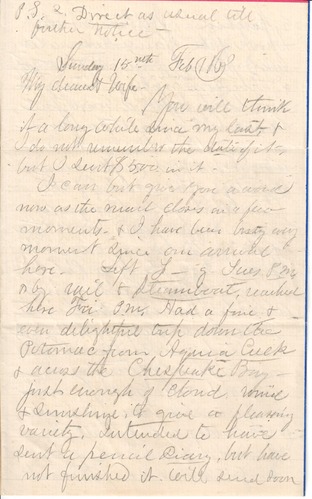 P.S. 2. Direct as usual till
further notice -
Sunday 15 Feb
My dearest Wife -
You will think
it a long while since my last &
I do not remember the date of it,
but I sent $500 in it.
I can but give you a word
now as the mail closes in a few
moments & I have been busy every
moment since our arrival
here. Left Tues. P.M.
by rail & steamboat, reached
here P.M. Had a fine &
even delightful trip down the
Potomac from Aquia Creek
& across the Chespeake Bay -
just enough of cloud, wind
& sunshine to give a pleasing
variety. Intended to have
sent a pencil diary, but have
not finished it. Will send soon